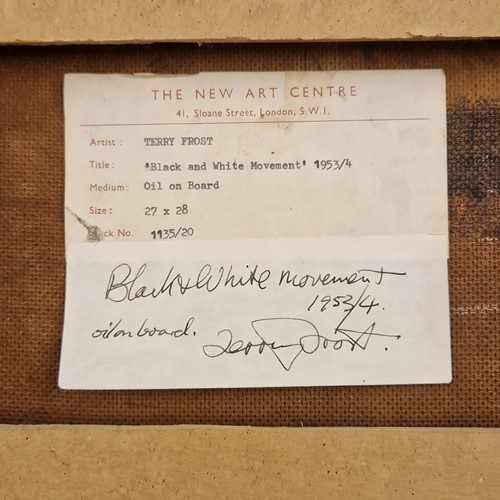 THE NEW ART CENTRE
41, Sloane Street, London, S.W.1.
Artist: TERRY FROST
Title: 'Black and White Movement' 1953/4
Medium: Oil on Board
Size: 27 x 28
ck No. 1135/20
Black & White Movement
1953/4.
oil on board. Terry Frost.